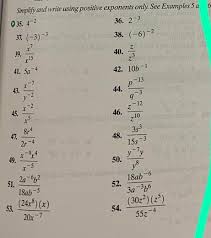 Simplify and write using positive exponents only. See Examples 5 a
35. 4⁻² 36. 2⁻³
37. (−3)⁻³ 38. (−6)⁻²
39. x⁷/x¹⁵ 40. z/z³
41. 5a⁻⁴ 42. 10b⁻¹
43. x⁻⁷/y⁻² 44. p⁻¹³/q⁻³
45. x⁻²/x⁵ 46. z⁻¹²/z¹⁰
47. 8r⁴/2r⁻⁴ 48. 3s³/15s⁻³
49. x⁻⁹x⁴/x⁻⁵ 50. y⁻⁷y/y⁸
51. 2a⁻⁶b²/18ab⁻⁵ 52. 18ab⁻⁶/3a⁻³b⁶
53. (24x⁸)(x)/20x⁻⁷ 54. (30z²)(z⁵)/55z⁻⁴